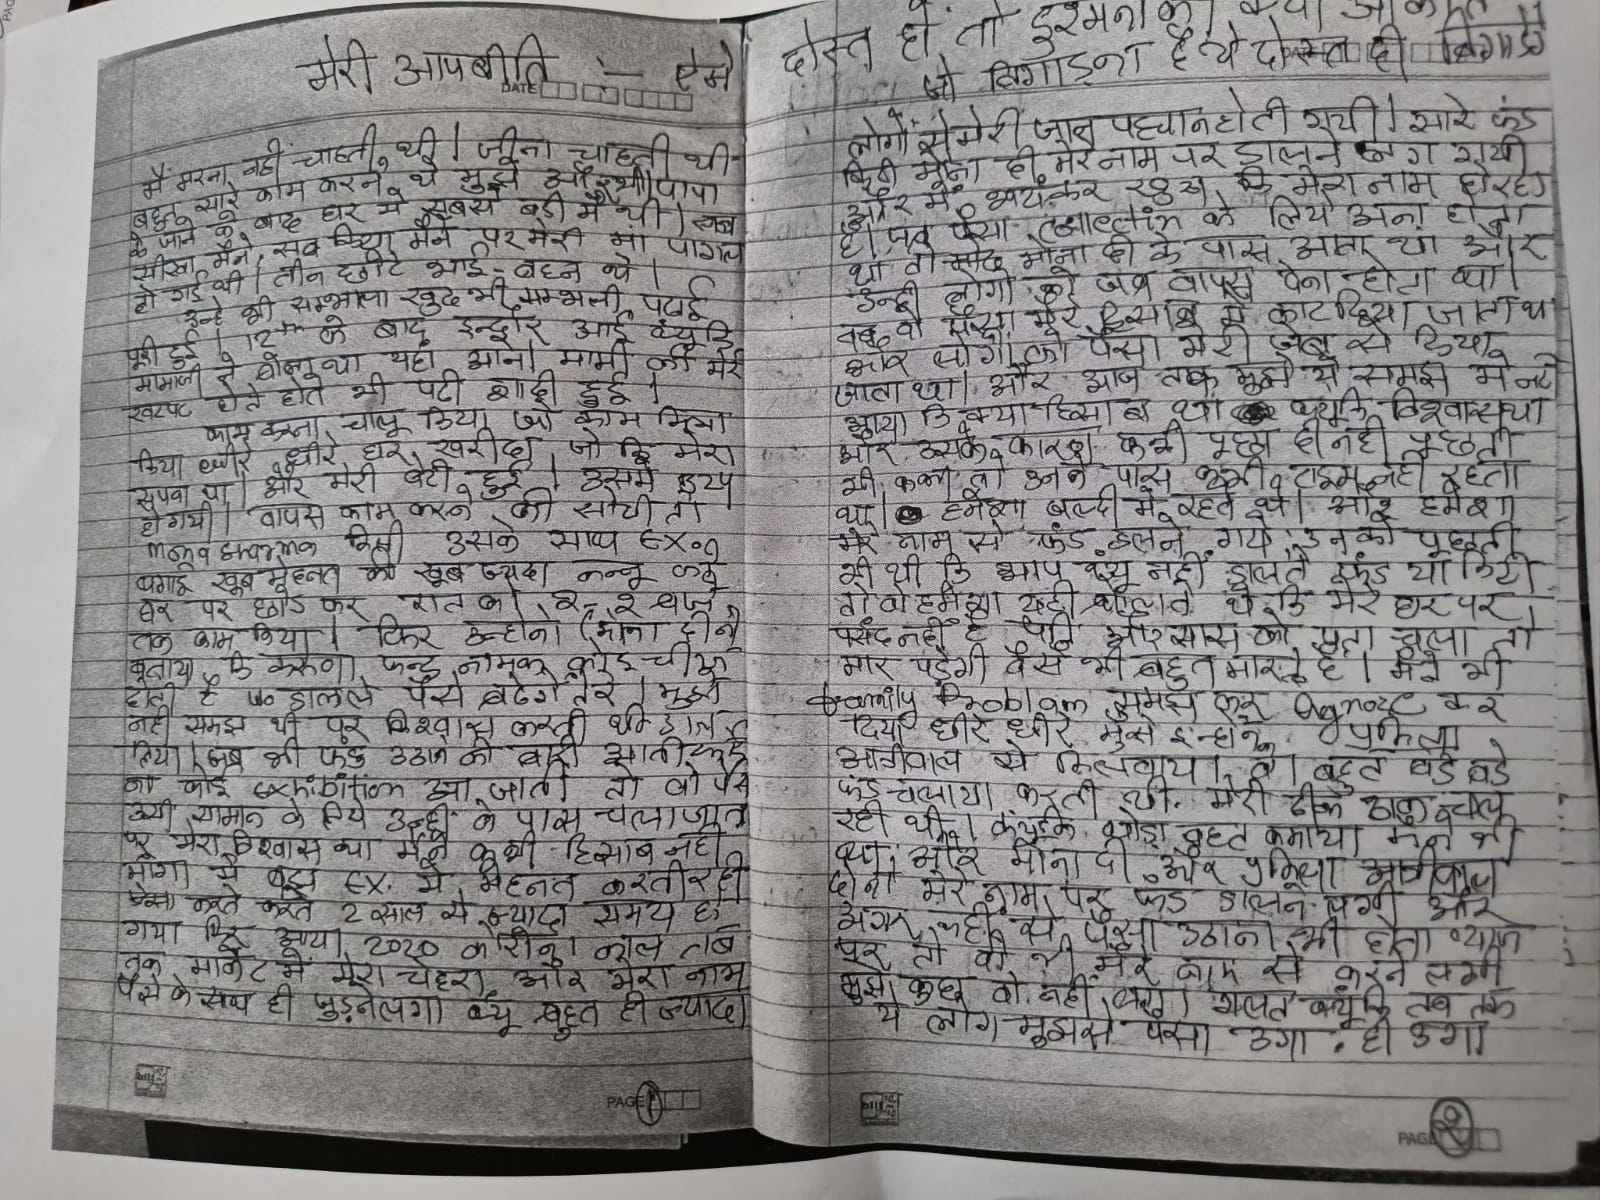 मेरी आपबीति :- ऐसे दोस्त हो तो दुश्मनो की क्या
जो बिगाड़ना है ये दोस्त ही बिगाडे
DATE
मैं मरना नहीं चाहती थी। जीना चाहती थी
बहुत सारे काम करने थे मुझे और भी। पापा
के जाने के बाद घर मे सबसे बडी मैं थी। सब
सीखा मैने, सब किया मैंने पर मेरी माँ पागल
हो गई थी। तीन छोटे भाई-बहन थे।
उन्हे भी सम्भाला खुद भी सम्भली, पढाई
पूरी हुई। 12th के बाद इन्दौर आई क्यूकि
मामाजी ने बोला था यहाँ आना। मामी की मेरी
खटपट होते होते भी पटी शादी हुई।
काम करना चालू किया, जो काम मिला
किया धीरे धीरे घर खरीदा जो कि मेरा
सपना था। और मेरी बेटी हुई। उसमे
हो गयी। वापस काम करने की सोची तो
मिली उसके साथ EX.
लगाई खूब मेहनत की खूब ज्यादा
घर पर छोड कर रात को 2-2 बजे
तक काम किया। फिर उन्होने (मोना दीने)
बताया कि फन्ड नामक कोई चीज
होती है डालले पैसे बढेगे तेरे। मुझे
नही समझ थी पर विश्वास करती थी डाल
दिया। जब भी फंड उठाने की बारी आती
ना कोई आ जाती तो वो पैसे
उसी सामान के लिये उन्ही के पास चला जाता
पर मेरा विश्वास था मैने कभी हिसाब नही
मांगा मे बस EX. मे मेहनत करती रही
ऐसा करते करते 2 साल से ज्यादा समय हो
गया फिर आया 2020 कोरोना काल तब
तक मार्केट में मेरा चेहरा और मेरा नाम
पैसे के साथ ही जुड़ने लगा क्यू बहुत ही ज्यादा
PAGE 1
लोगों से मेरी जान पहचान होती गयी। सारे फंड
किटी मोना दी मेरे नाम पर डालने लग गयी
और मैं भयंकर खुश कि मेरा नाम हो रहा
है। जब पैसा के लिये आना होता
था तो सीधे मोना दी के पास आता था और
उन्ही लोगो को जब वापस देना होता था।
तब वो पैसा मेरे हिसाब मे काट दिया जाता था
और लोगो को पैसा मेरी जेब से दिया
जाता था। और आज तक मुझे ये समझ मे नही
आया कि क्या हिसाब था क्यूकि विश्वास था
और उसके कारण कभी पूछा ही नही पूछती
भी कब तो उनके पास कभी टाइम नही रहता
था। हमेशा जल्दी मे रहते थे। और हमेशा
मेरे नाम से फंड डालते गये, उनको पूछती
भी थी कि आप क्यू नहीं डालते फंड या किटी
तो वो हमेशा यही बोलते थे कि मेरे घर पर
पसंद नहीं है पति और सास को पता चला तो
मार पडेगी वैसे भी बहुत मारते है। मैने भी
Problem समझ कर कर
दिया धीरे धीरे मुझे इन्होने प्रमिला
से मिलवाया। वो बहुत बडे बडे
फंड चलाया करती थी। मेरी ठीक ठाक चल
रही थी। क्यूकि थोड़ा बहुत कमाया मैने भी
था, और मोना दी और प्रमिला
दोनो मेरे नाम पर फंड डालने लगी और
अगर कही से पैसा उठाना भी होता ब्याज
पर तो वो भी मेरे नाम से करने लगी
मुझे कुछ वो नही लगा गलत क्यूंकि तब तक
ये लोग मुझसे पैसा उगा ही उगा
PAGE 2